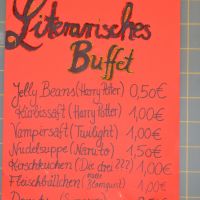 Literarisches
Buffet
Jelly Beans (Harry Potter) 0,50€
Kürbissaft (Harry Potter) 1,00€
Vampersaft (Twilight) 1,00€
Nudelsuppe (Naruto) 1,50€
Kirschkuchen (Die drei ???) 1,00€
Fleischbällchen 1,00€